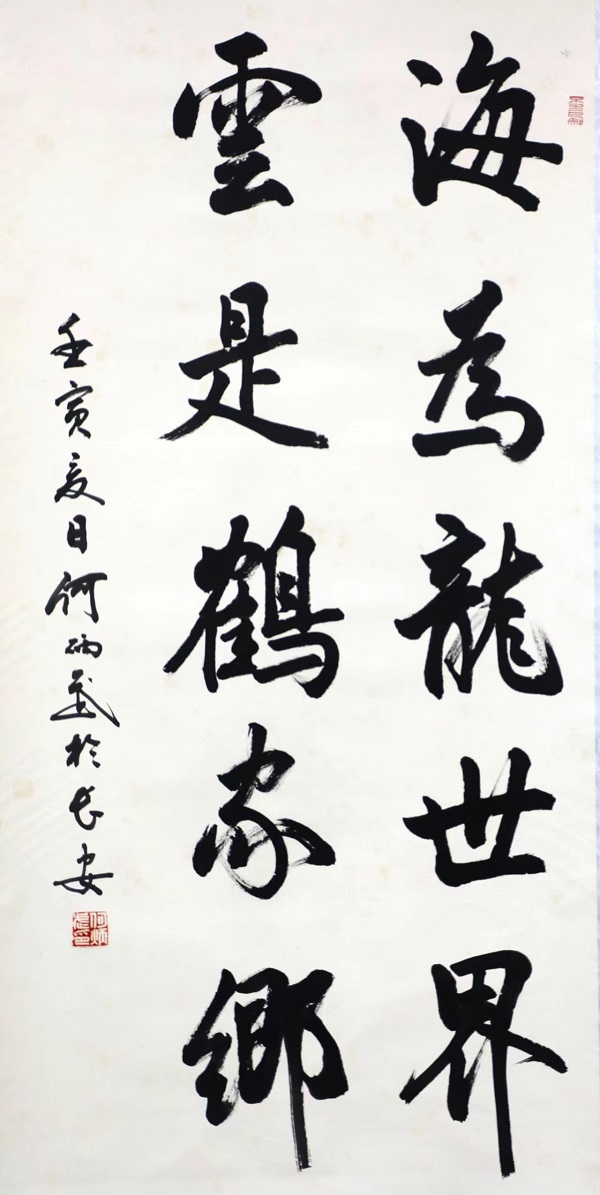 海為龍世界
雲是鶴家鄉
壬寅夏日何炳武於長安
何炳武印